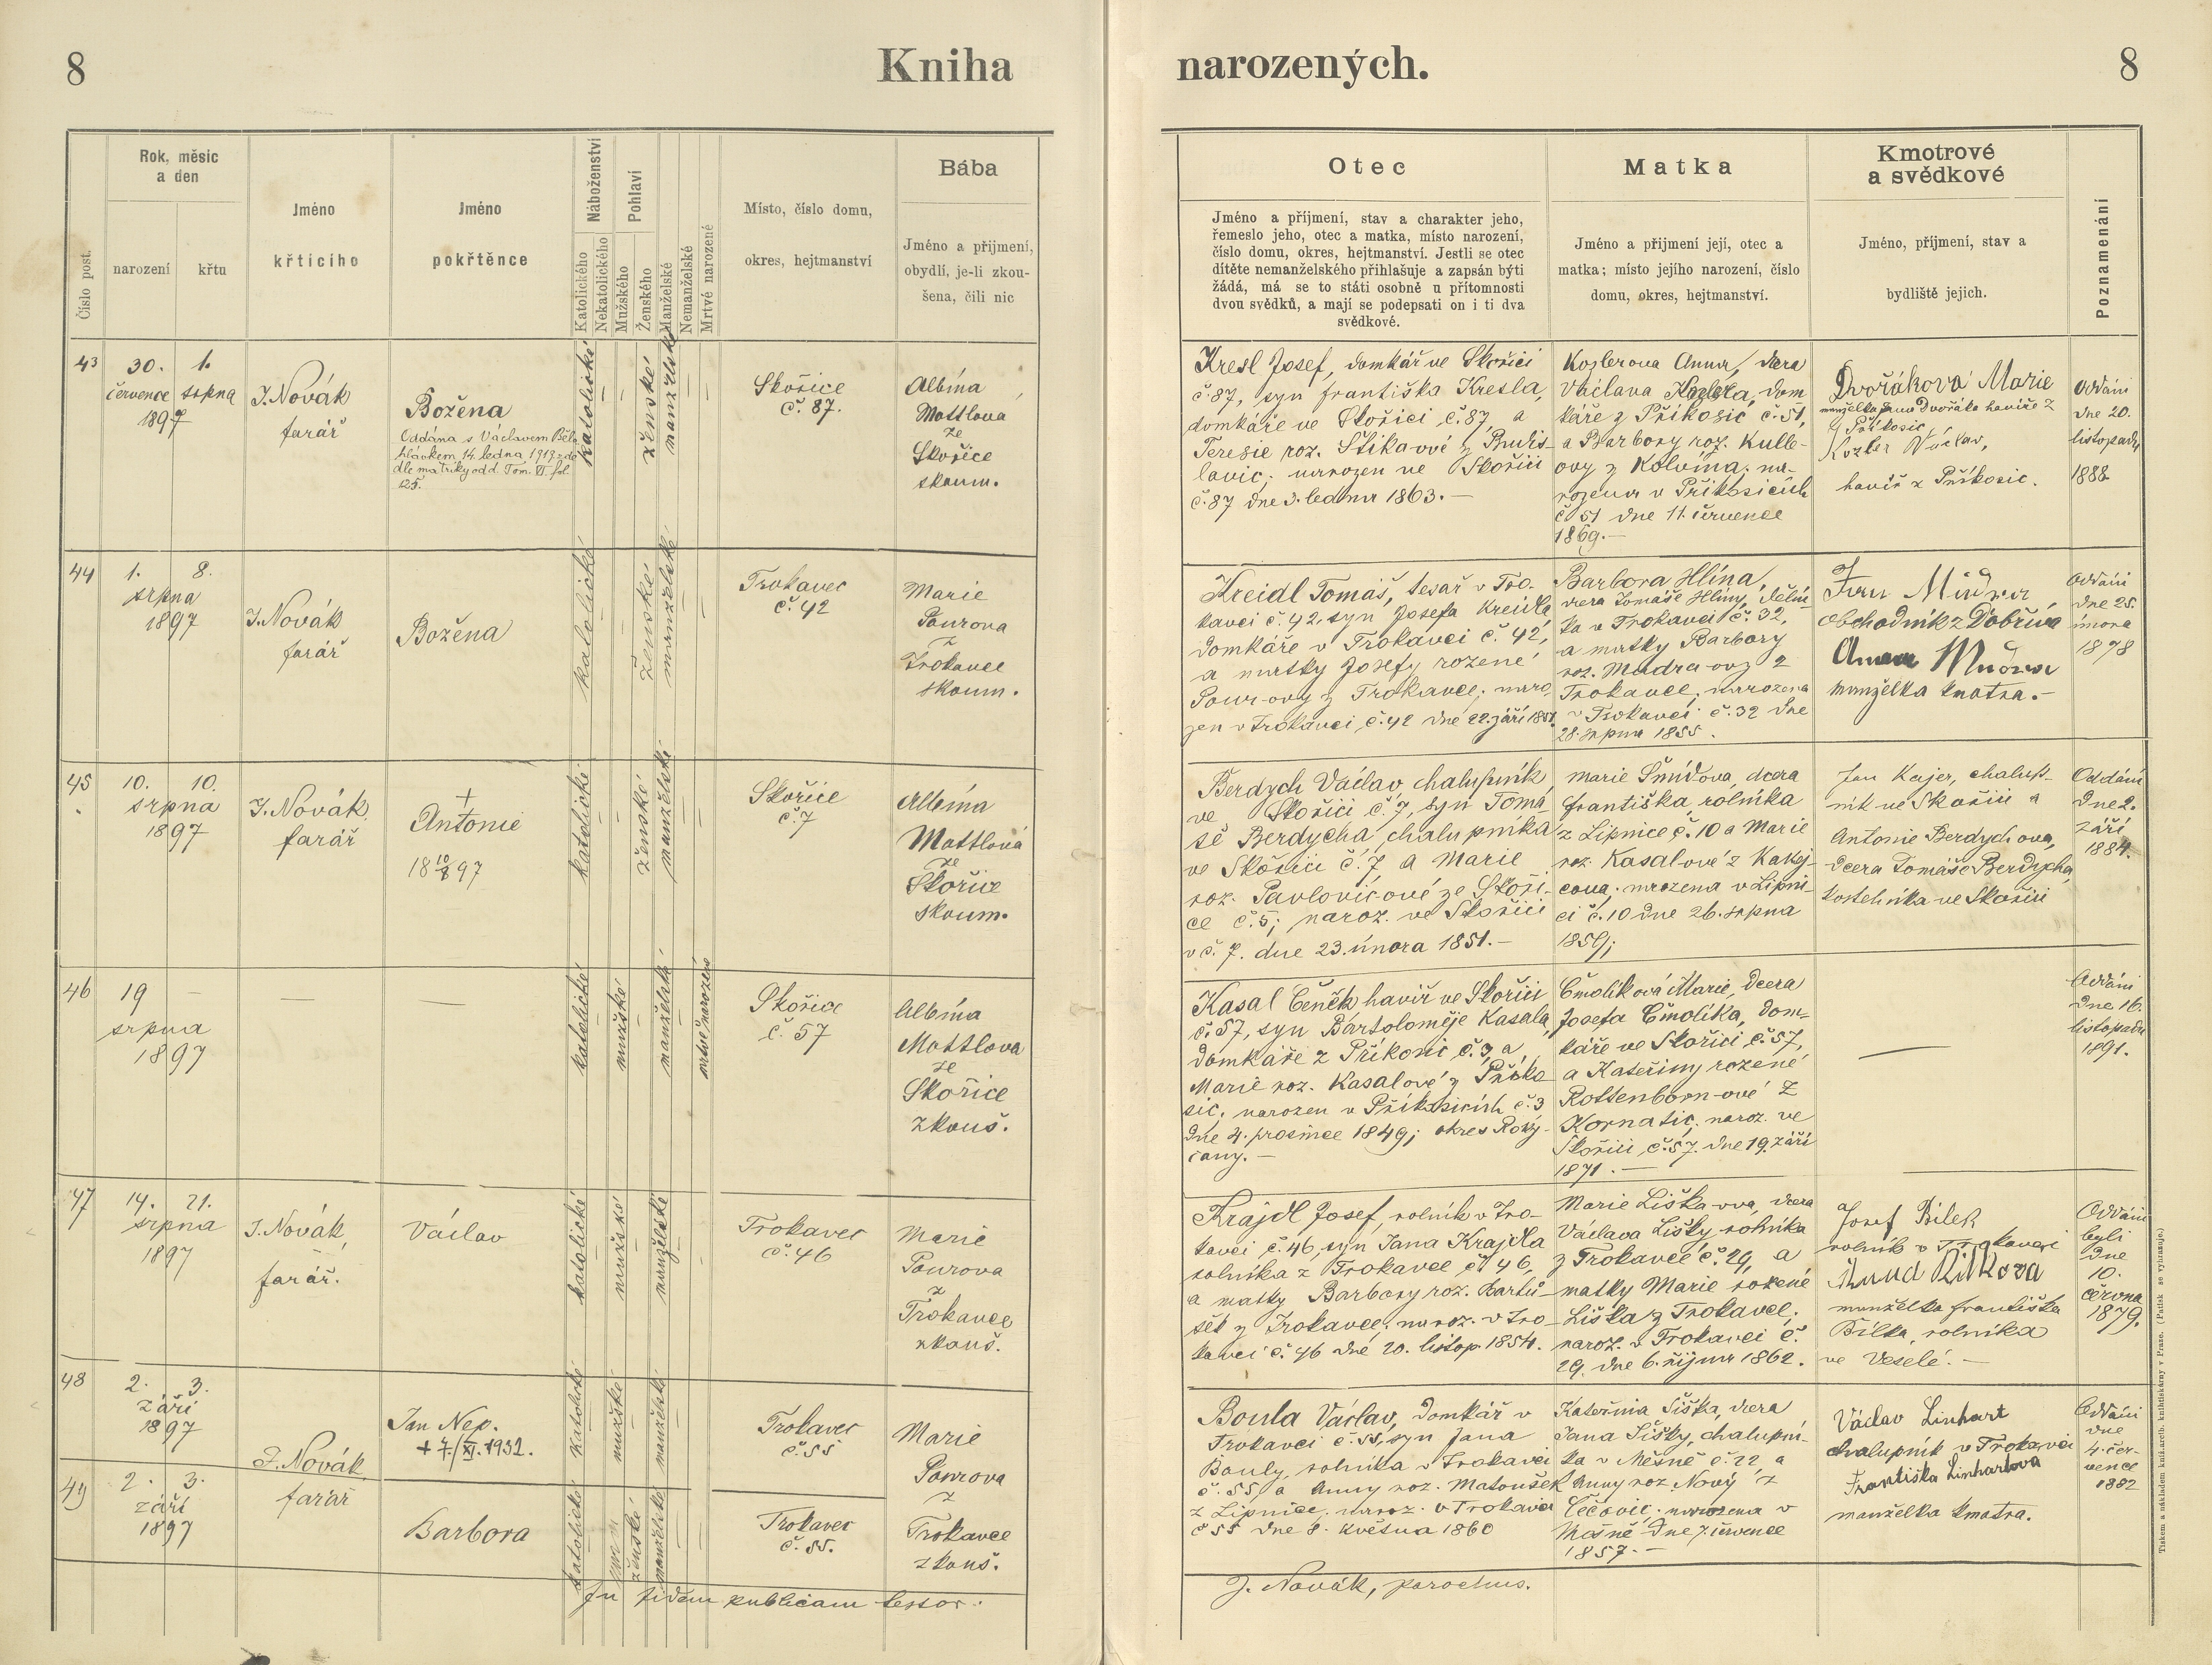 8
Kniha
narozených.
8
Číslo post.
Rok, měsíc
a den
narození
křtu
Jméno
křticího
Jméno
pokřtěnce
Náboženství
Katolického
Nekatolického
Pohlaví
Mužského
Ženského
Manželské
Nemanželské
Mrtvě narozené
Místo, číslo domu,
okres, hejtmanství
Bába
Jméno a přijmení,
obydlí, je-li zkou-
šena, čili nic
Otec
Jméno a příjmení, stav a charakter jeho,
řemeslo jeho, otec a matka, místo narození,
číslo domu, okres, hejtmanství. Jestli se otec
dítěte nemanželského přihlašuje a zapsán býti
žádá, má se to státi osobně u přítomnosti
dvou svědků, a mají se podepsati on i ti dva
svědkové.
Matka
Jméno a přijmení její, otec a
matka; místo jejího narození, číslo
domu, okres, hejtmanství.
Kmotrové
a svědkové
Jméno, příjmení, stav a
bydliště jejich.
Poznamenání
43
30. 1.
července srpna
1897
J. Novák
farář
Božena
Oddána s Václavem Běla
hlávkem 14. ledna 1919 zde
dle matriky odd. Tom. VI. fol.
125.
katolické
ženské
manželské
Skořice
č. 87.
Albína
Mottlova
ze
Skořice
skoum.
Kresl Josef, domkář ve Skořici
č. 87, syn františka Kresla,
domkáře ve Skořici č. 87, a
Teresie roz. Stikarové z Budis-
lavic; narozen ve Skořici
č. 87 dne 3. ledna 1863. —
Kozlerova Anna, dcera
Václava Kozlera, dom
káře z Příkosic č. 51,
a Barbory roz. Kulle-
ovy z Kolvína; na-
rozena v Příkosicích
č 51 dne 11. července
1869. —
Dvořáková Marie
manželka Jana Dvořáka havíře z
Příkosic
Kozler Václav,
havíř z Příkosic.
Oddáni
dne 20.
listopadu
1888
44
1. 8.
srpna
1897
J. Novák
farář
Božena
katolické
ženské
manželské
Trokavec
č. 42
Marie
Pourova
z
Trokavce
skoum.
Kreidl Tomáš, tesař v Tro-
kavci č. 42, syn Josefa Kreidla
domkáře v Trokavci č. 42,
a matky Josefy rozené
Pour-ovy z Trokavce; naro
zen v Trokavci č. 42 dne 22. září 1851.
Barbora Hlína,
dcera Tomáše Hlíny, dělní-
ka v Trokavci č. 32,
a matky Barbory
roz. Mudra-ovy z
Trokavce, narozena
v Trokavci č. 32 dne
28. srpna 1855.
obchodník z Dobříva
manželka kmotra. —
Oddáni
dne 25.
února
1878
45
10. 10.
srpna
1897
J. Novák,
farář
+
Antonie
18 10/8 97
katolické
ženské
manželské
Skořice
č. 7
Albína
Mottlová
ze
Skořice
skoum.
Berdych Václav, chalupník
ve Skořici č. 7, syn Tomá
še Berdycha, chalupníka
ve Skořici č. 7, a Marie
roz. Pavlovic-ové ze Skoři-
ce č. 5; naroz. ve Skořici
v č. 7. dne 23. února 1851. —
Marie Šmídova, dcera
františka, rolníka
z Lipnice č. 10 a Marie
roz. Kasalové z Kakej-
cova; narozena v Lipni-
ci č. 10 dne 26. srpna
1859;
Jan Kajer, chalup-
ník ve Skořici a
Antonie Berdychova,
dcera Tomáše Berdycha,
kostelníka ve Skořici
Oddáni
dne 2.
září
1884.
46
19 —
srpna
1897
—
—
katolické
mužské
manželské
mrtvě narozené
Skořice
č. 57
Albína
Mottlova
ze
Skořice
zkouš.
Kasal Čeněk, havíř ve Skořici
č. 57, syn Bartoloměje Kasala,
domkáře z Příkosic č. 3, a
Marie roz. Kasalové z Příko
sic, narozen v Příkosicích č. 3
dne 4. prosince 1849; okres Roky-
cany. —
Čmolíková Marie, dcera
Josefa Čmolíka, dom-
káře ve Skořici č. 57,
a Kateřiny rozené
Rottenborn-ové z
Kornatic, naroz. ve
Skořici č. 57. dne 19. září
1871. —
—
Oddáni
dne 16.
listopadu
1891.
47
14. 21.
srpna
1897
J. Novák,
farář.
Václav
katolické
mužské
manželské
Trokavec
č. 46
Marie
Pourova
z
Trokavce
zkouš.
Krajdl Josef, rolník v Tro-
kavci č. 46, syn Jana Krajdla
rolníka z Trokavce č. 46,
a matky Barbory roz. Bartů-
šek z Trokavce; naroz. v Tro-
kavci č. 46 dne 20. listop. 1854.
Marie Liška-ova, dcera
Václava Lišky, rolníka
z Trokavce č. 29, a
matky Marie rozené
Liška z Trokavce;
naroz. v Trokavci č.
29. dne 6. října 1862.
Josef Bílek
rolník v Trokavci
manželka františka
Bílka, rolníka
ve Veselé. —
Oddáni
byli
dne
10.
června
1879.
48
2. 3.
září
1897
J. Novák
farář
Jan Nep.
+ 7./XI. 1932.
katolické
mužské
manželské
Trokavec
č. 55
Marie
Pourova
z
Trokavce
zkouš.
Boula Václav, domkář v
Trokavci č. 55, syn Jana
Bouly, rolníka v Trokavci
č. 55, a Anny roz. Matoušek
z Lipnice, naroz. v Trokavci
č 55 dne 8. května 1860
Kateřina Šiška, dcera
Jana Šišky, chalupní-
ka v Mešně č. 22 a
Anny roz. Nový z
Čečovic, narozena v
Mešně dne 7. července
1857. —
Václav Linhart
chalupník v Trokavci
Františka Linhartova
manželka kmotra.
Oddáni
dne
4. čer-
vence
1882
49
2. 3.
září
1897
Barbora
katolické
ženské
manželské
Trokavec
č. 55.
In fidem publicam testor:
J. Novák, parochus.
Tiskem a nákladem kníž. arcib. knihtiskárny v Praze. (Patisk se vyhrazuje.)